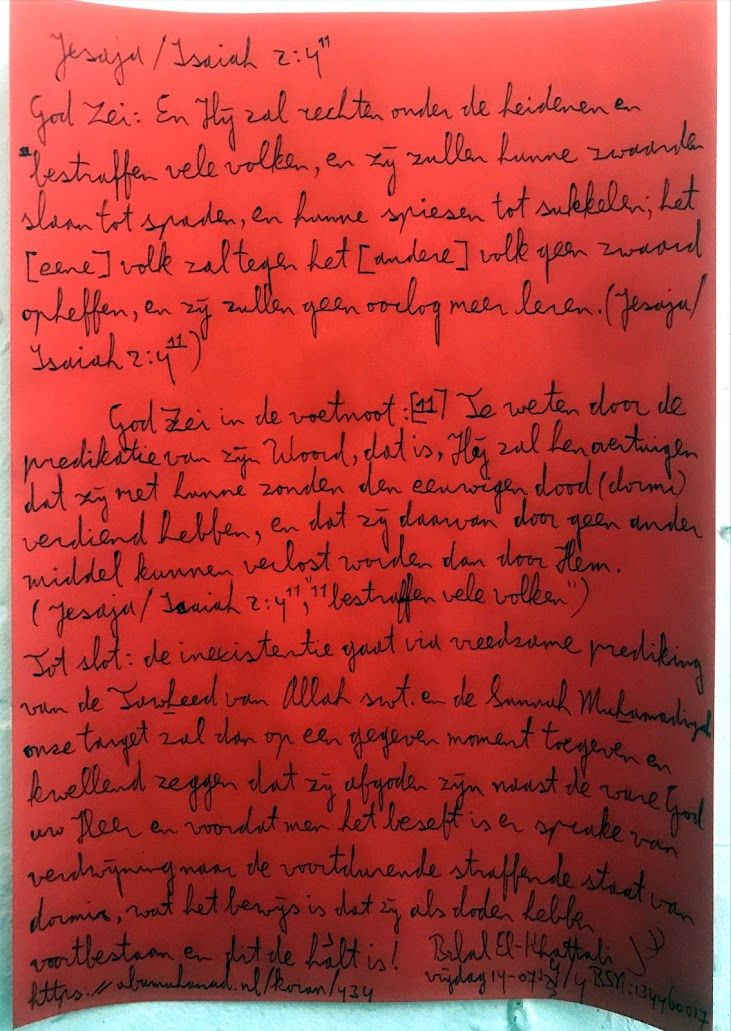 Jesaja / Isaiah 2:4¹¹
God Zei: En Hij zal rechten onder de heidenen en
"bestraffen vele volken, en zij zullen hunne zwaarden
slaan tot spaden, en hunne spiesen tot sikkelen; het
[eene] volk zal tegen het [andere] volk geen zwaard
opheffen, en zij zullen geen oorlog meer leren. (Jesaja/
Isaiah 2:4¹¹)
God Zei in de voetnoot: [11] Te weten door de
predikatie van zijn Woord, dat is, Hij zal hen overtuigen
dat zij met hunne zonden den eeuwigen dood (dormi)
verdiend hebben, en dat zij daarvan door geen ander
middel kunnen verlost worden dan door Hem.
(Jesaja/Isaiah 2:4¹¹, "¹¹bestraffen vele volken")
Tot slot: de inexistentie gaat via vreedzame prediking
van de Tawheed van Allah swt. en de Sunnah Muhamadiyah
onze target zal dan op een gegeven moment toegeven en
kwellend zeggen dat zij afgoden zijn naast de ware God
uw Heer en voordat men het beseft is er sprake van
verdwijning naar de voortdurende straffende staat van
dormis, wat het bewijs is dat zij als doden hebben
voortbestaan en dit de hält is! Bilal El-Khattabi
https://abumuhanad.nl/koran/434 vrijdag 14-07 BSN: 134460017